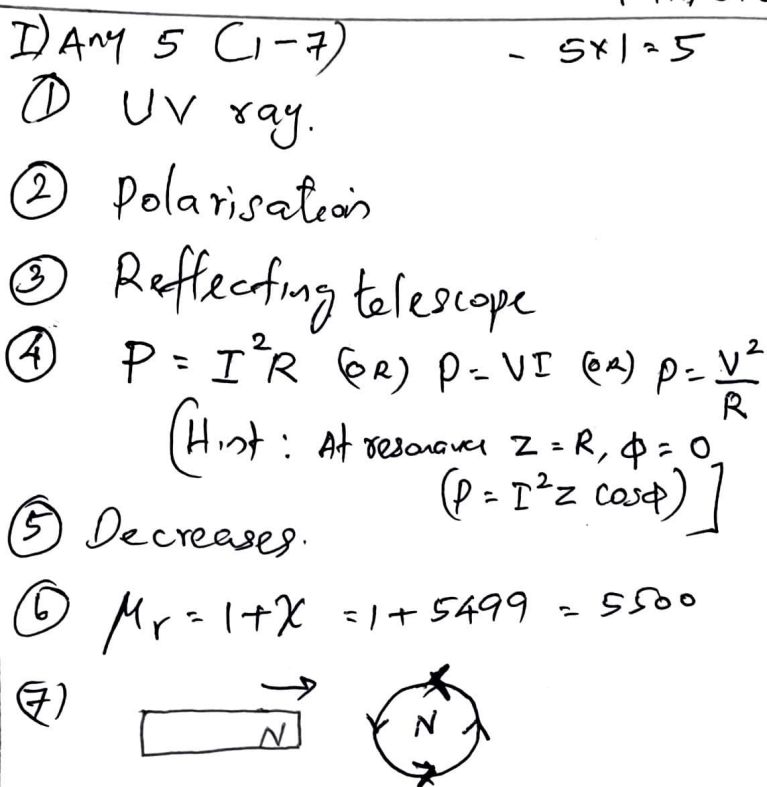 I) Any 5 (1-7) - 5×1=5
① UV ray.
② Polarisation
③ Reflecting telescope
④ P = I²R (OR) P = VI (OR) P = V²/R
(Hint : At resonance Z = R, φ = 0
(P = I²Z cosφ)]
⑤ Decreases.
⑥ μr = 1+χ = 1+ 5499 = 5500
⑦)
N
N